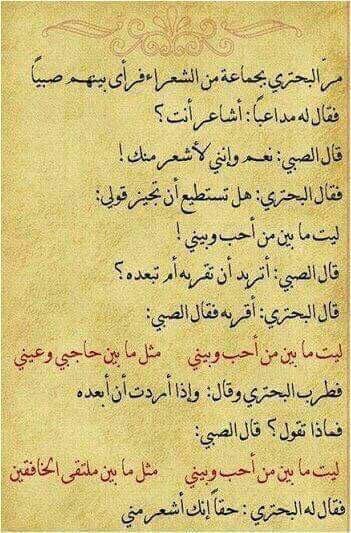 مرّ البحتري بجماعة من الشعراء فرأى بينهم صبياً
فقال له مداعباً: أشاعر أنت؟
قال الصبي: نعم وإنني لأشعر منك!
فقال البحتري: هل تستطيع أن تجيز قولي:
ليت ما بين من أحب وبيني!
قال الصبي: أتريد أن تقربه أم تبعده؟
قال البحتري: أقربه فقال الصبي:
ليت ما بين من أحب وبيني مثل ما بين حاجبي وعيني
فطرب البحتري وقال: وإذا أردت أن أبعده
فماذا تقول؟ قال الصبي:
ليت ما بين من أحب وبيني مثل ما بين ملتقى الخافقين
فقال له البحتري: حقاً إنك أشعر مني